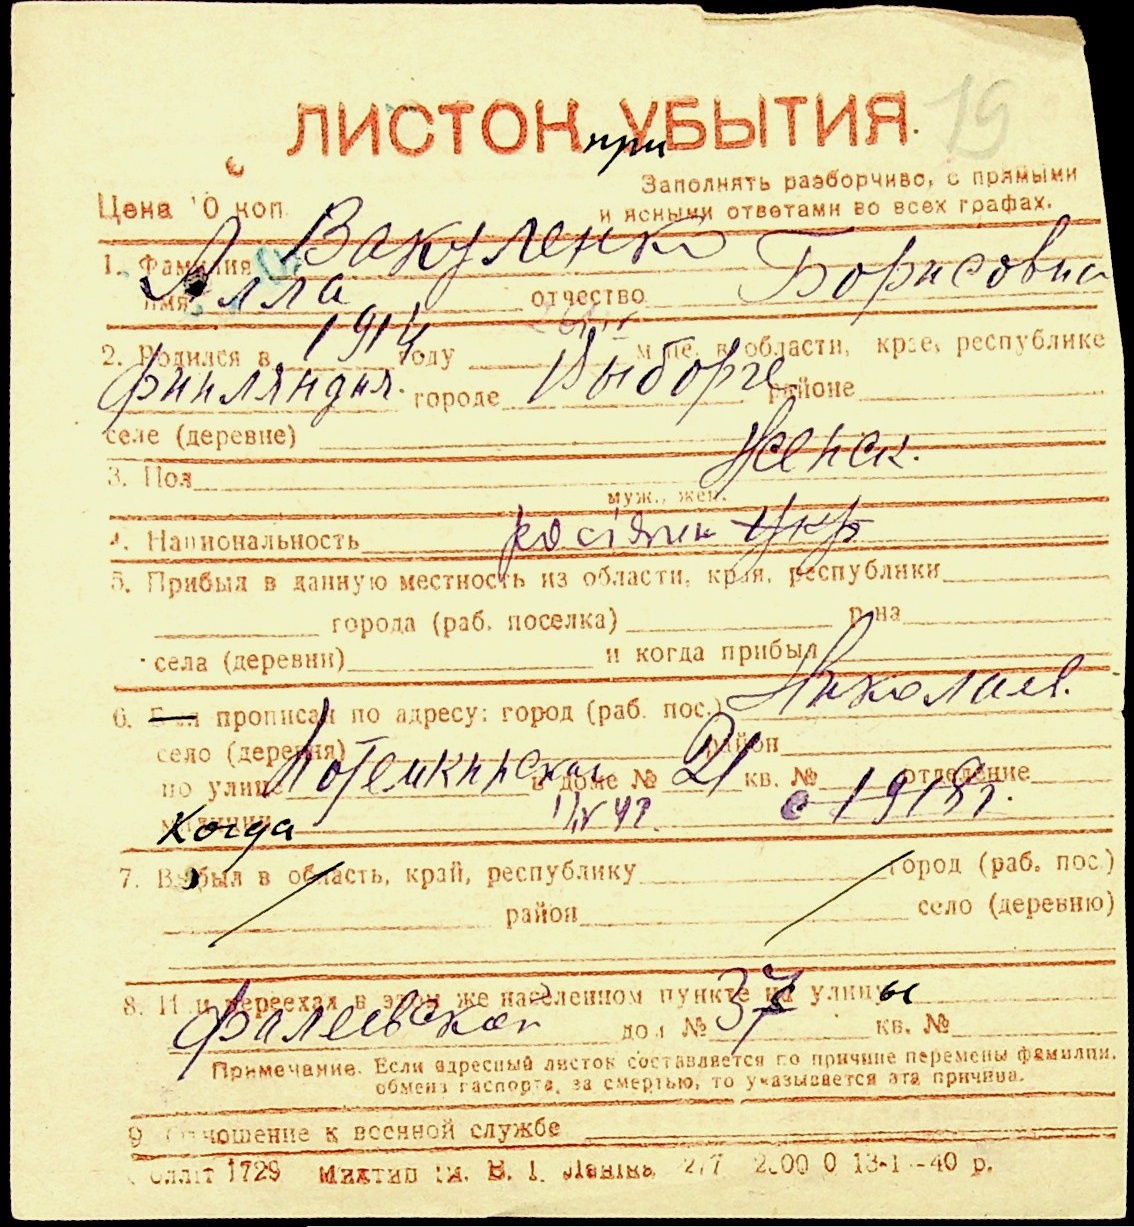 19
ЛИСТОК УБЫТИЯ
при
Заполнять разборчиво, с прямыми
Цена 10 коп. и ясными ответами во всех графах.
1. Фамилия Вакуленко
имя Алла отчество Борисовна
2. Родился в 1914 году м-це, в области, крае, республике
Финляндия. городе Выборге районе
селе (деревне)
3. Пол Женск.
муж., жен.
4. Национальность росіянин укр
5. Прибыл в данную местность из области, края, республики
города (раб. поселка) р-на
села (деревни) и когда прибыл
6. Был прописан по адресу: город (раб. пос.) Николаев.
село (деревня) район
по улице Потемкинская в доме № 21 кв. № отделение
милиции Когда 1/IV 42. с 1918 г.
7. Выбыл в область, край, республику город (раб. пос.)
район село (деревню)
8. Или переехал в этом же населенном пункте на улицу ы
Фалеевской дом № 37 кв. №
Примечание. Если адресный листок составляется по причине перемены фамилии,
обмена паспорта, за смертью, то указывается эта причина.
9. Отношение к военной службе
1729 Миктип ім. В. І. Леніна, 13-1-40 р.